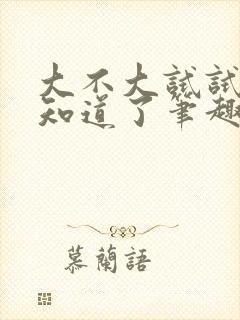 大不大試試
知道了筆趣
慕蘭語